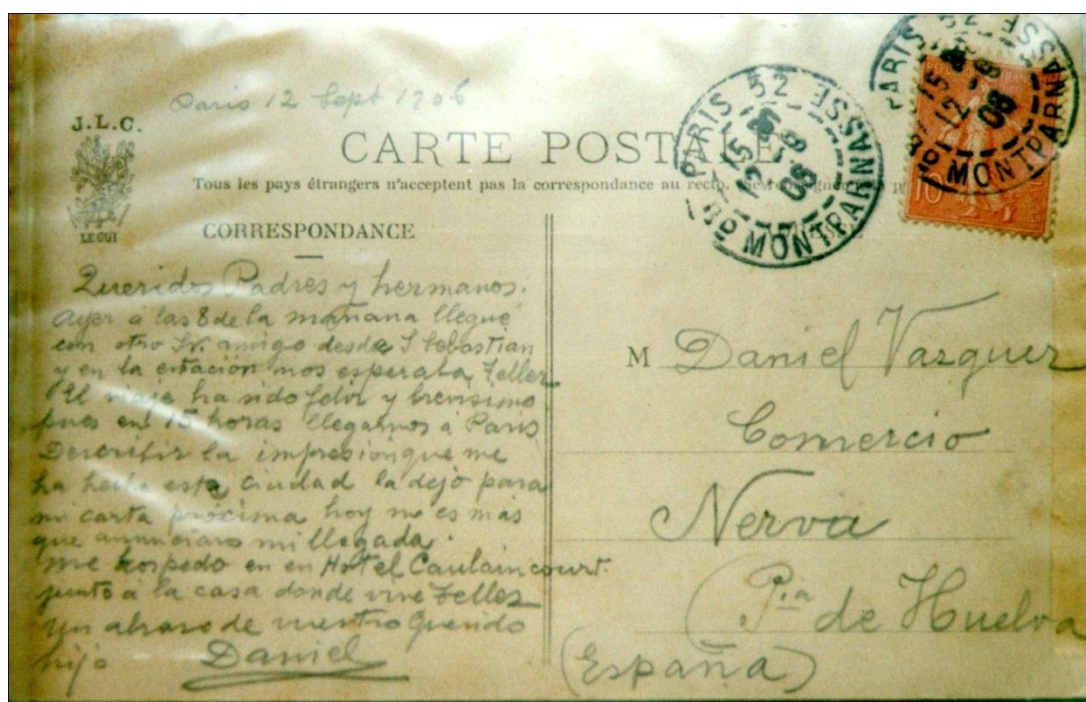 Paris 12 Sept 1906
J.L.C.
LE GUI
CARTE POSTALE
Tous les pays étrangers n'acceptent pas la correspondance au recto.
CORRESPONDANCE
PARIS 52
Bd MONTPARNASSE
PARIS
Bd MONTPARNASSE
10
Queridos Padres y hermanos.
Ayer a las 8 de la mañana llegué
con otro Sr. amigo desde S Sebastian
y en la estación nos esperaba Zeller
El viaje ha sido feliz y brevisimo
pues en 15 horas llegamos a Paris
Describir la impresion que me
ha hecho esta ciudad la dejo para
mi carta proxima hoy no es más
que anunciaros mi llegada.
me hospedo en en Hotel Caulaincourt.
junto a la casa donde vive Zeller
Un abrazo de vuestro querido
hijo Daniel
M Daniel Vazquez
Comercio
Nerva
(Pia de Huelva
(España)